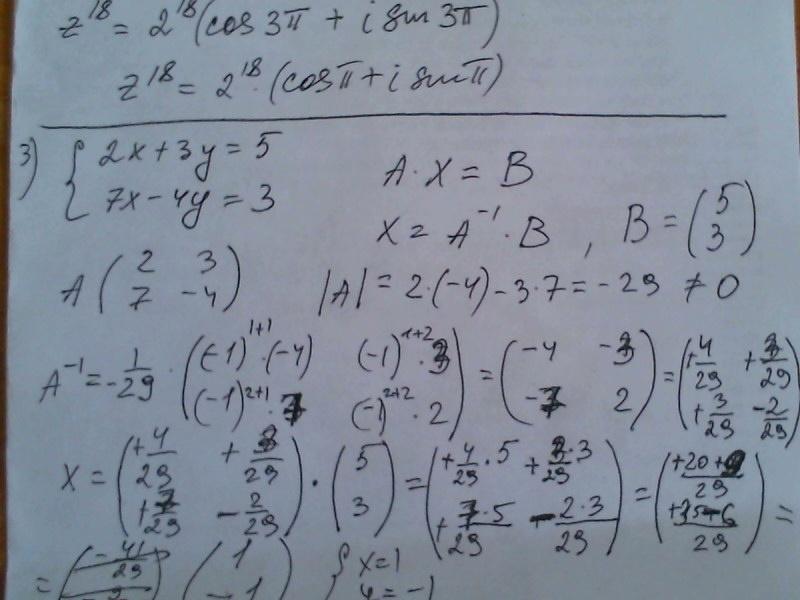 z^18 = 2^18 (cos 3π + i sin 3π)
z^18 = 2^18 · (cos π + i sin π)
3) { 2x + 3y = 5
7x - 4y = 3
A · X = B
X = A^-1 · B , B = (5 3)
A (2 3
7 -4)
|A| = 2·(-4) - 3·7 = -29 ≠ 0
A^-1 = 1/-29 · ((-1)^1+1 · (-4) (-1)^1+2 · 3
(-1)^2+1 · 7 (-1)^2+2 · 2) = (-4 -3
-7 2) = (+4/29 +3/29
+3/29 -2/29)
X = (+4/29 +3/29
+7/29 -2/29) · (5
3) = (+4/29 · 5 + 3/29 · 3
+ 7·5/29 - 2·3/29) = (+20+9/29
+35-6/29) =
= (1
-1) { x = 1
y = -1